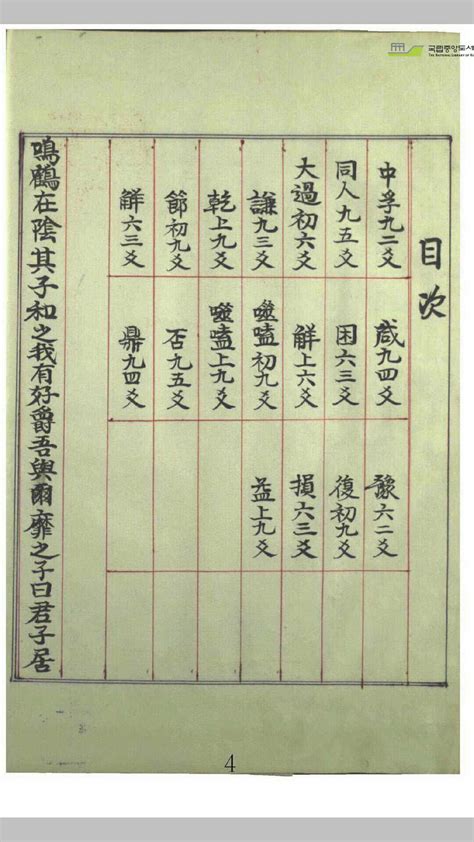 국립중앙도서
THE NATIONAL LIBRARY OF
目次
中孚九二爻
同人九五爻
大過初六爻
謙九三爻
乾上九爻
節初九爻
解六三爻
咸九四爻
困六三爻
解上六爻
噬嗑初九爻
噬嗑上九爻
否九五爻
鼎九四爻
豫六二爻
復初九爻
損六三爻
益上九爻
鳴鶴在陰其子和之我有好爵吾與爾靡之子曰君子居
4